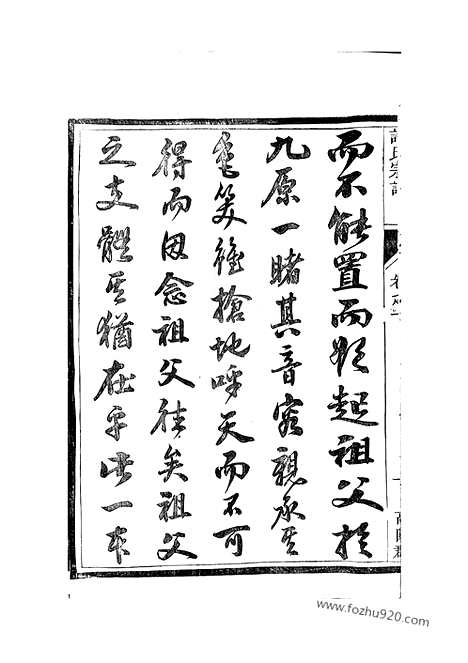 氏宗譜
而不能置而欲起祖父於
九原一睹其音容親承其
色笑雖搶地呼天而不可
得而因念祖父往矣祖父
之支體其猶在乎此一本
www.fozhu920.com